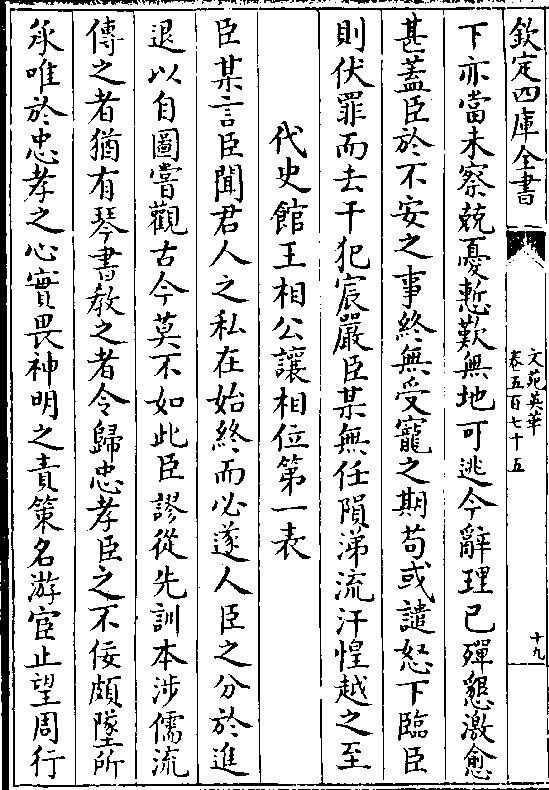 欽定四庫全書
文苑英華
卷五百七十五
十九
下亦當未察兢憂慙歎無地可逃今辭理已殫懇激愈
甚蓋臣於不安之事終無受寵之期苟或譴怒下臨臣
則伏罪而去干犯宸嚴臣某無任隕涕流汗惶越之至
代史館王相公讓相位第一表
臣某言臣聞君人之私在始終而必遂人臣之分於進
退以自圖嘗觀古今莫不如此臣謬從先訓本涉儒流
傳之者猶有琴書教之者令歸忠孝臣之不佞頗墜所
承唯於忠孝之心實畏神明之責策名游宦止望周行